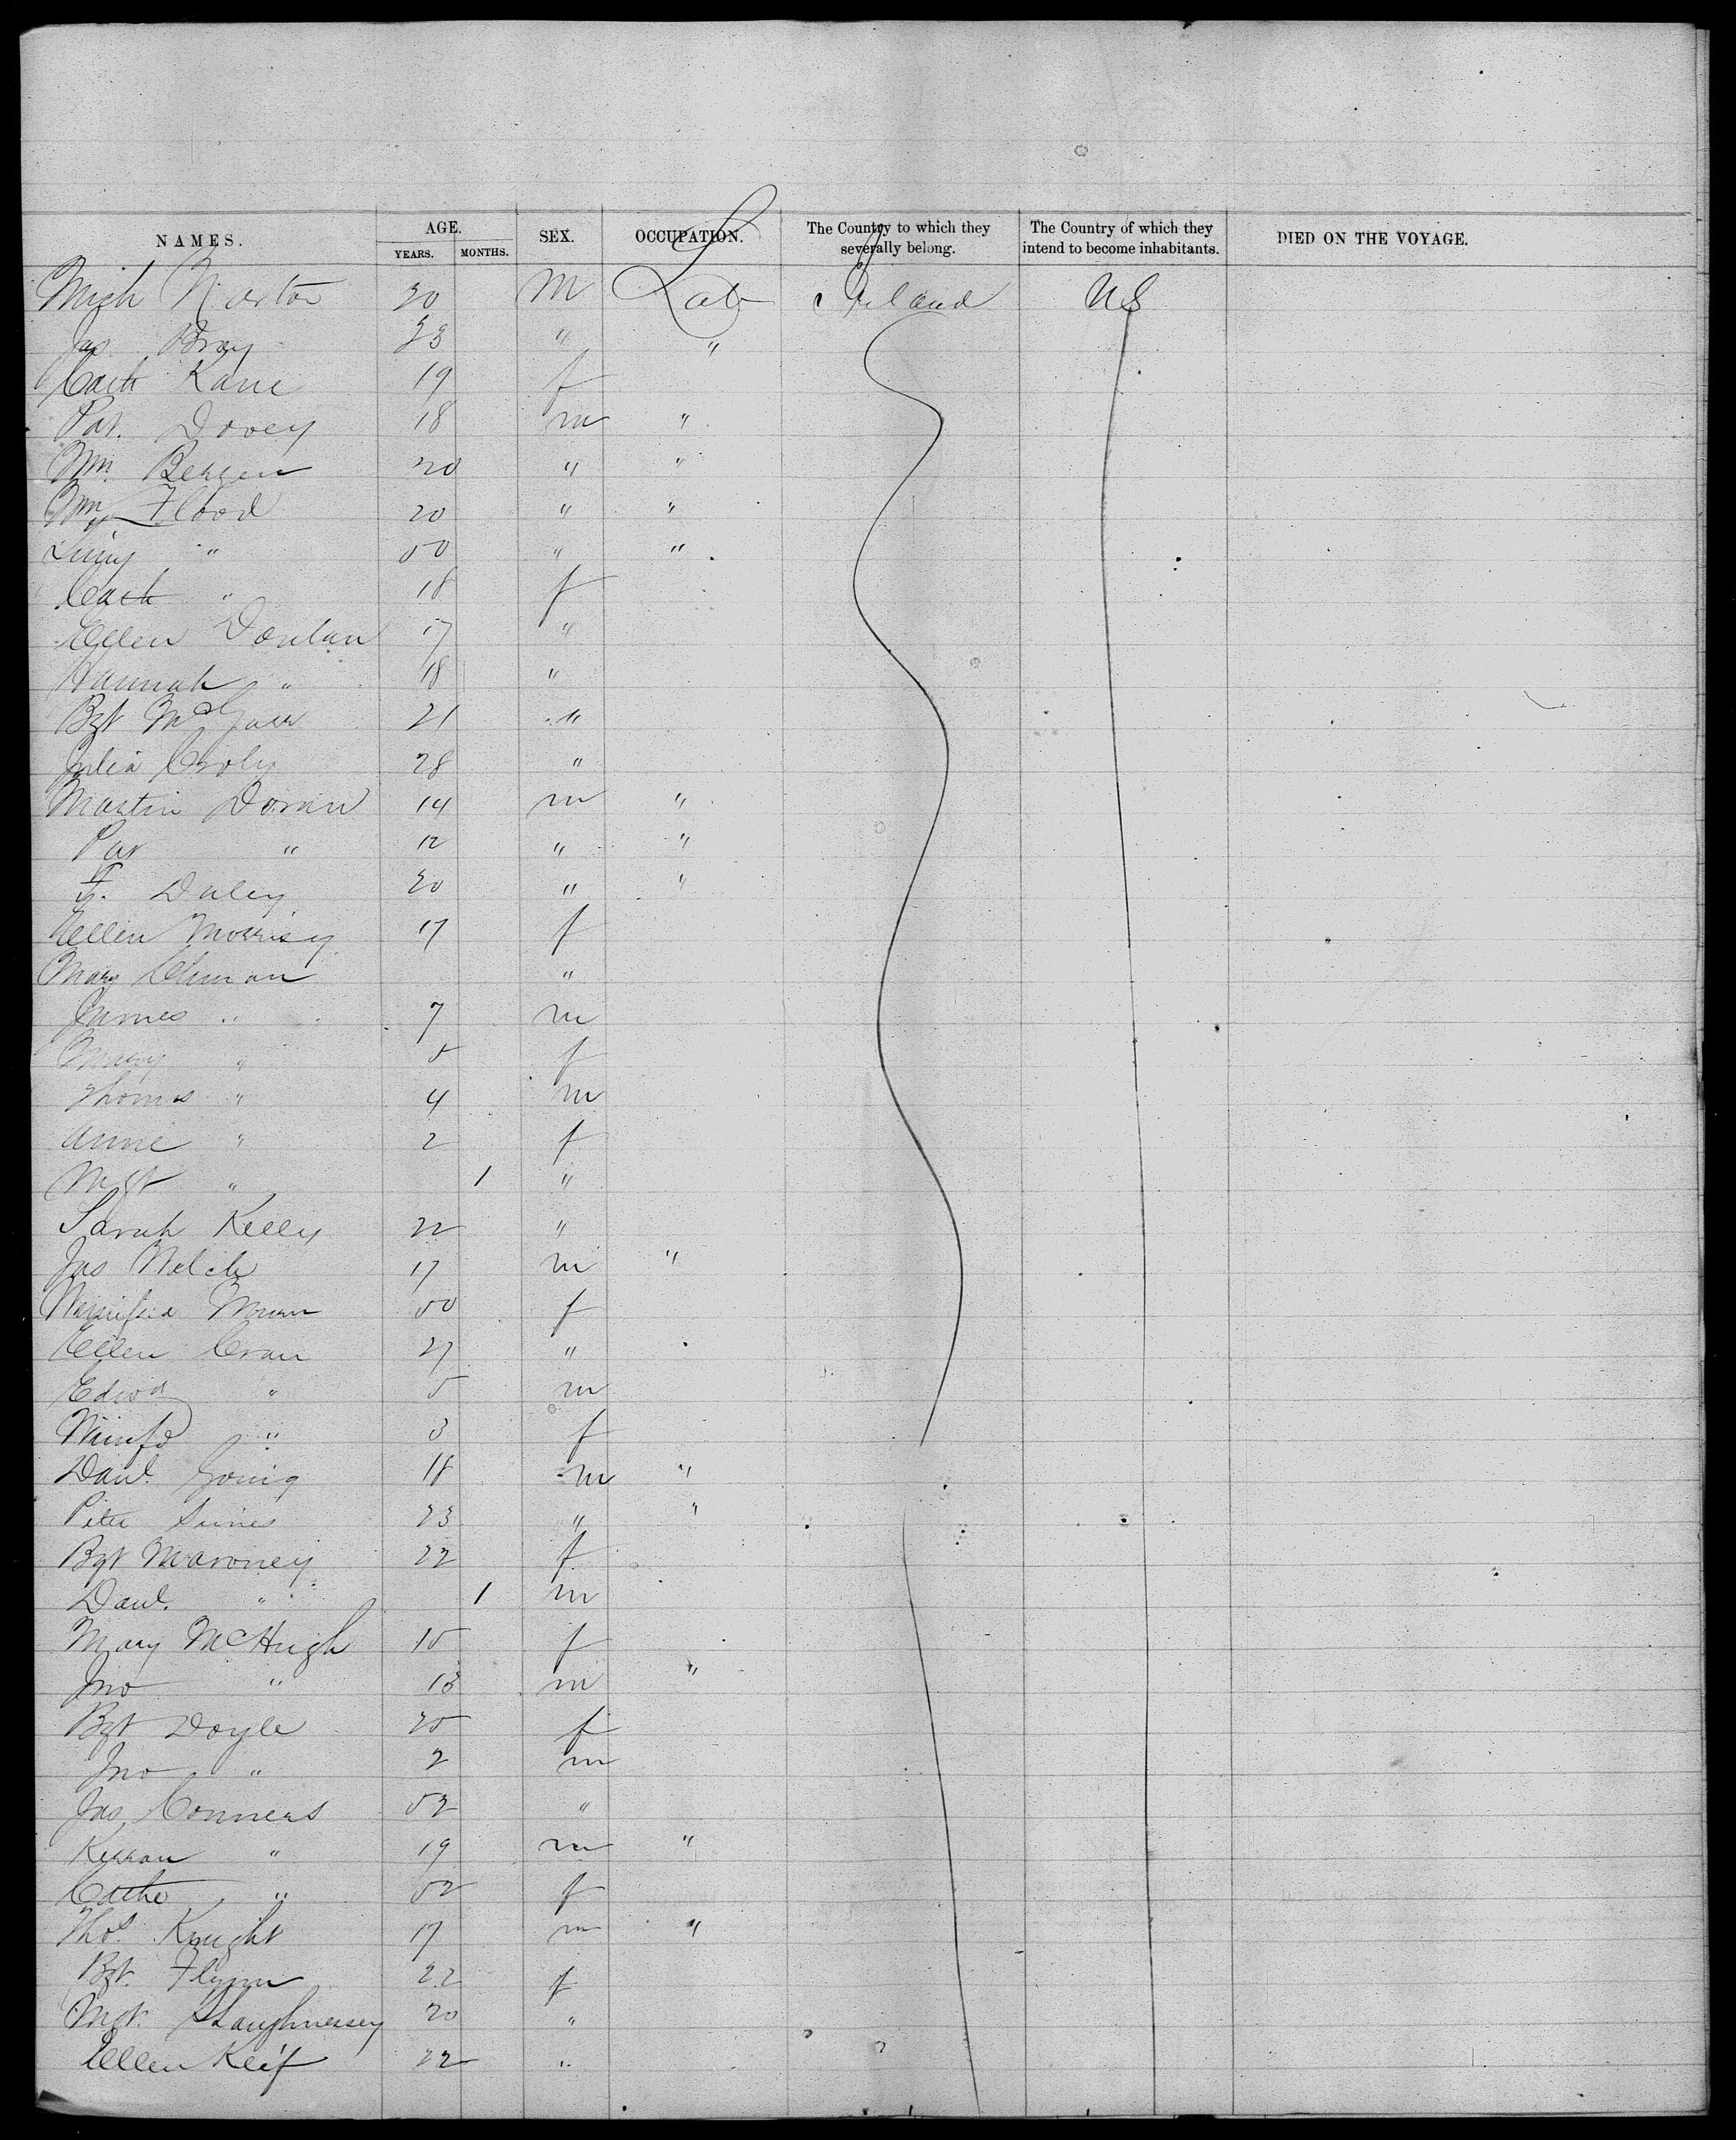 NAMES. AGE. YEARS. MONTHS. SEX. OCCUPATION. The Country to which they severally belong. The Country of which they intend to become inhabitants. DIED ON THE VOYAGE.
Mich Norton 20 M Lab Ireland US
Jas Bray 23 " "
Cath Kane 19 f
Pat. Dovey 18 m "
Wm. Bergen 20 " "
Wm Flood 20 " "
" 50 " "
Cath " 18 f
Ellen Donlan 17 "
Hannah " 18 "
Bgt 21 "
Julia Croly 28 "
Martin Doran 14 m "
Pat " 12 " "
Daley 20 " "
Ellen Morrisy 17 f
Mary "
James " 7 m
Mary " 5 f
Thomas " 4 m
Annie " 2 f
Mgt " 1 "
Sarah Kelly 22 "
Jas Welch 17 m "
50 f
Ellen Cran 27 "
Edwd " 5 m
Winifd " 3 f
Danl. 18 m "
Peter 23 " "
Bgt Maroney 22 f
Danl. " 1 m
Mary McHugh 15 f
Jno " 13 m "
Bgt Doyle 25 f
Jno " 2 m
Jas Conners 52 "
" 19 m "
Cathe " 52 f
Thos. Knight 17 m "
Bgt. Flynn 22 f
Mgt. Shaughnessey 20 "
Ellen Keif 22 "